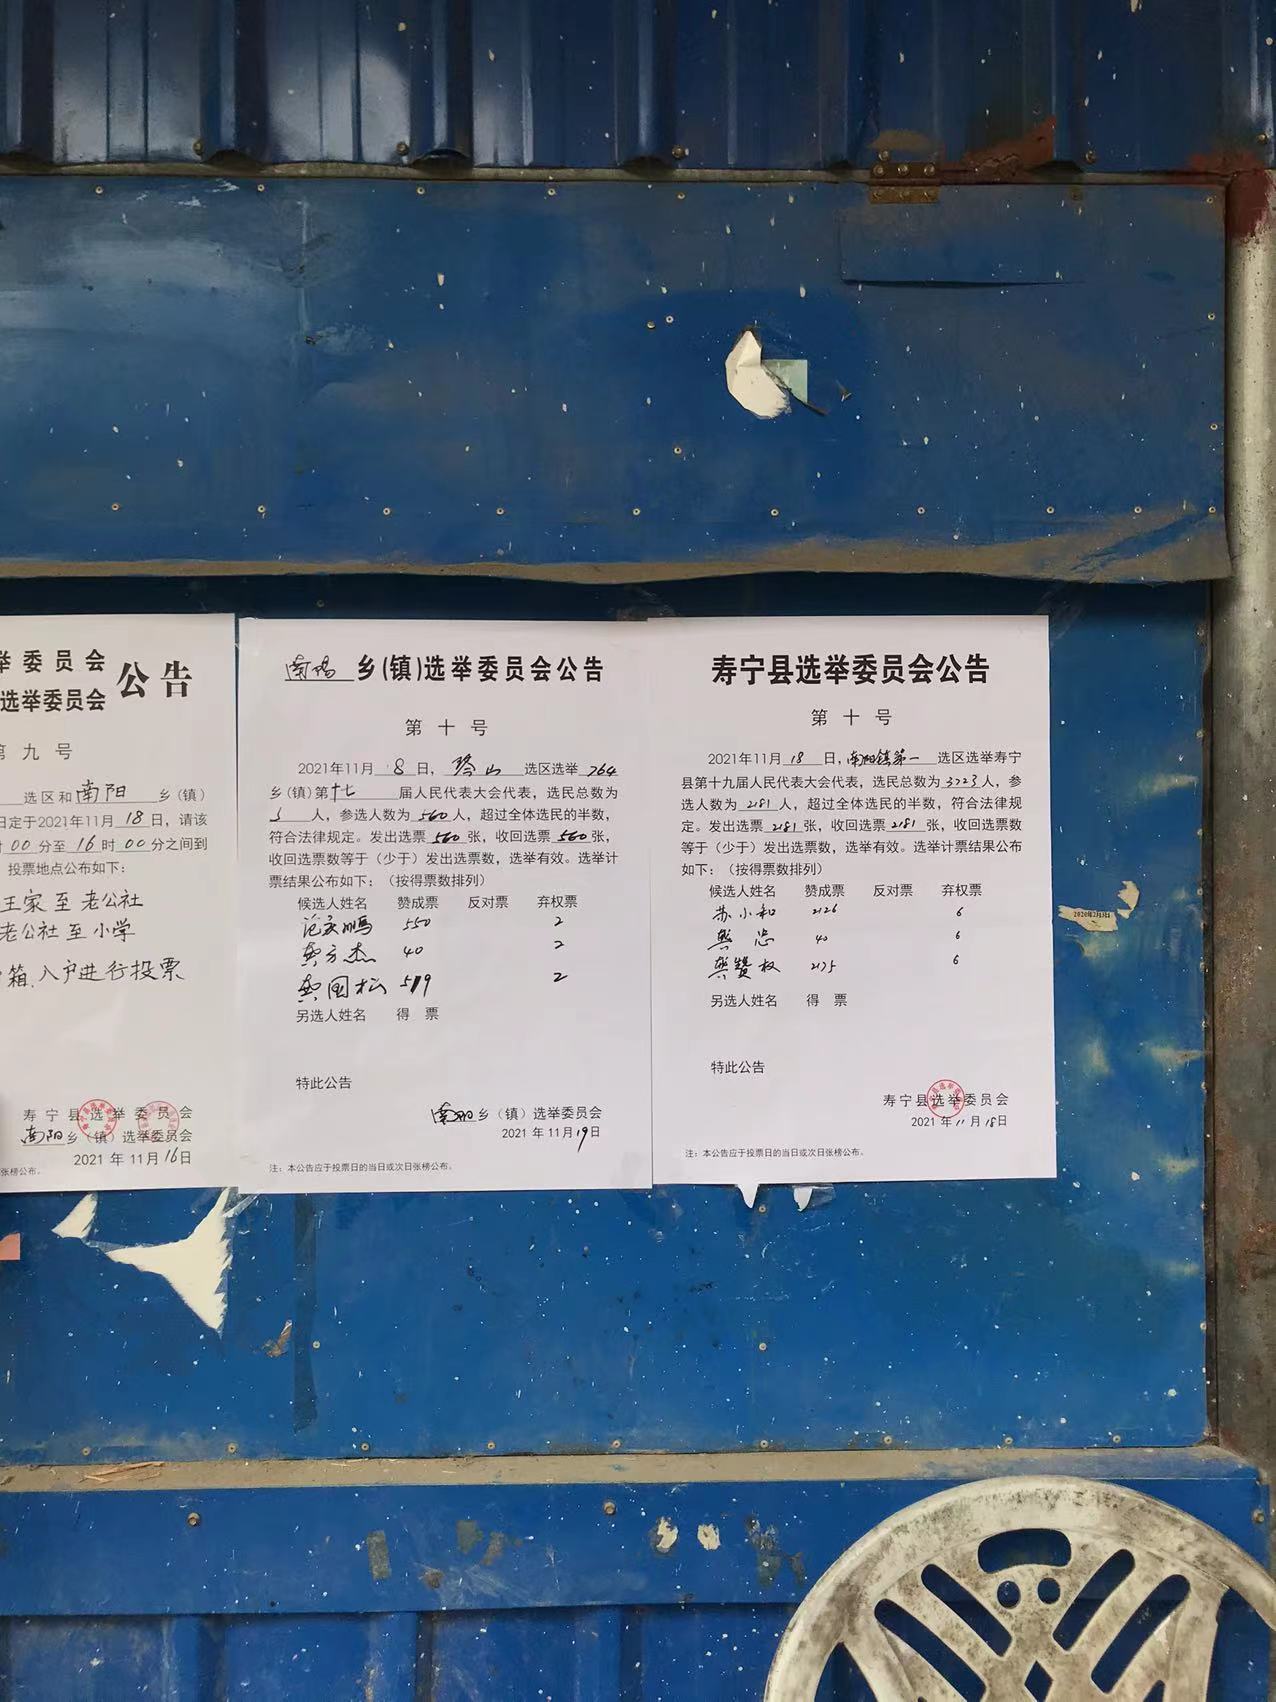 举委员会
选举委员会
公告
第九号
选区和南阳乡(镇)
日定于2021年11月18日，请该
时00分至16时00分之间到
投票地点公布如下：
王家至老公社
老公社至小学
箱.入户进行投票
寿宁县选举委员会
南阳乡（镇）选举委员会
2021年11月16日
张榜公布。
南阳乡(镇)选举委员会公告
第十号
2021年11月8日，山选区选举764
乡(镇)第十七届人民代表大会代表，选民总数为
人，参选人数为560人，超过全体选民的半数，
符合法律规定。发出选票560张，收回选票560张，
收回选票数等于（少于）发出选票数，选举有效。选举计
票结果公布如下：（按得票数排列）
候选人姓名 赞成票 反对票 弃权票
550 2
龚方杰 40 2
龚国松 519 2
另选人姓名 得票
特此公告
南阳乡（镇）选举委员会
2021年11月19日
注：本公告应于投票日的当日或次日张榜公布。
寿宁县选举委员会公告
第十号
2021年11月18日，南阳镇第一选区选举寿宁
县第十九届人民代表大会代表，选民总数为3723人，参
选人数为2181人，超过全体选民的半数，符合法律规
定。发出选票2181张，收回选票2181张，收回选票数
等于（少于）发出选票数，选举有效。选举计票结果公布
如下：（按得票数排列）
候选人姓名 赞成票 反对票 弃权票
苏小和 2126 6
龚忠 40 6
龚赞权 2175 6
另选人姓名 得票
特此公告
寿宁县选举委员会
2021年11月18日
注：本公告应于投票日的当日或次日张榜公布。